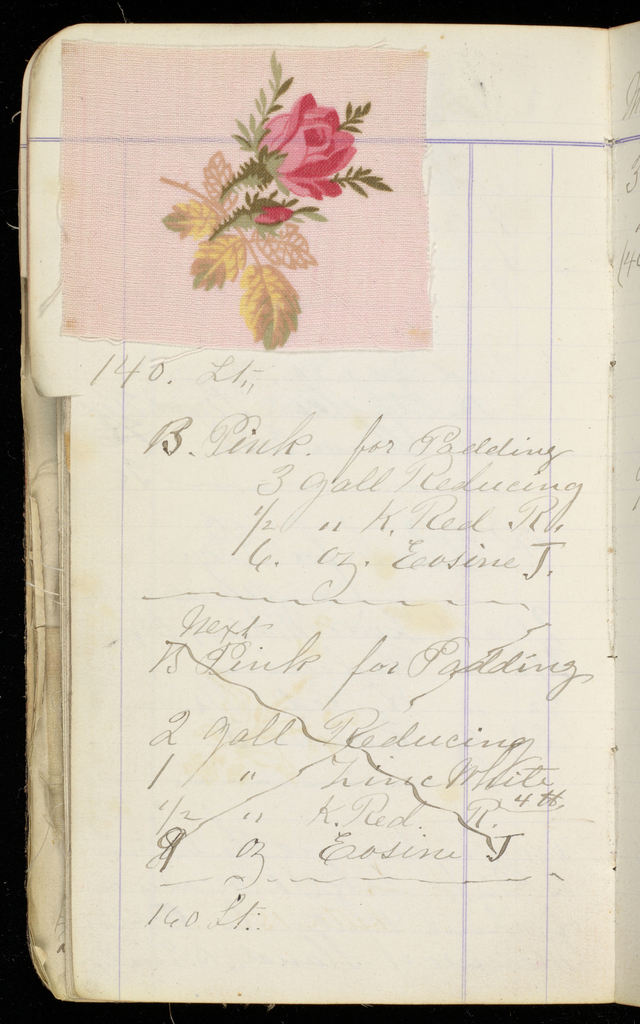 140. Lt,,
B. Pink. for Padding
3 gall Reducing
1/2 " K. Red R.
6. oz. Eosine J.
Next
B Pink for Padding
2 gall Reducing
1 " Zinc White
1/2 " K. Red. R. 4 tt
oz Eosine J
160 Lt.
3